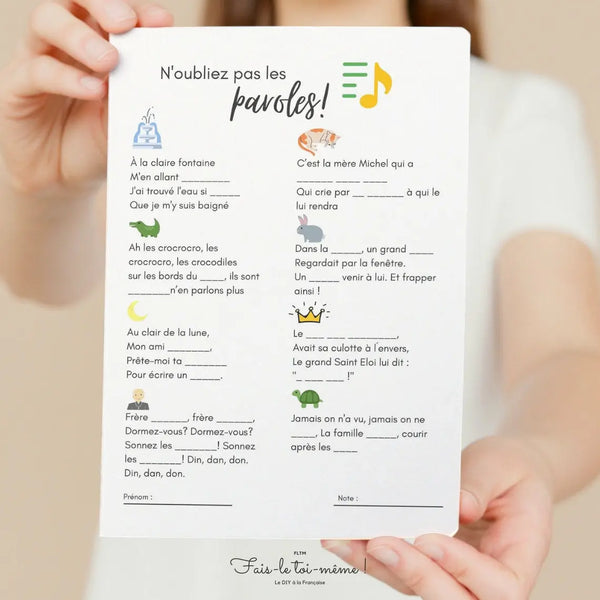 N'oubliez pas les
paroles!
À la claire fontaine
M'en allant ________
J'ai trouvé l'eau si _____
Que je m'y suis baigné
Ah les crocrocro, les
crocrocro, les crocodiles
sur les bords du ____, ils sont
_______n'en parlons plus
Au clair de la lune,
Mon ami _______,
Prête-moi ta _______
Pour écrire un _____.
Frère ______, frère ______,
Dormez-vous? Dormez-vous?
Sonnez les _______! Sonnez
les _______! Din, dan, don.
Din, dan, don.
Prénom :
C'est la mère Michel qui a
______ ____ ____
Qui crie par __ ______ à qui le
lui rendra
Dans la _____, un grand ____
Regardait par la fenêtre.
Un _____ venir à lui. Et frapper
ainsi !
Le ___ ___ ________,
Avait sa culotte à l'envers,
Le grand Saint Eloi lui dit :
"_ ___ ___ !"
Jamais on n'a vu, jamais on ne
____, La famille _____, courir
après les ____
Note :
FLTM
Fais-le toi-même !
Le DIY à la Française